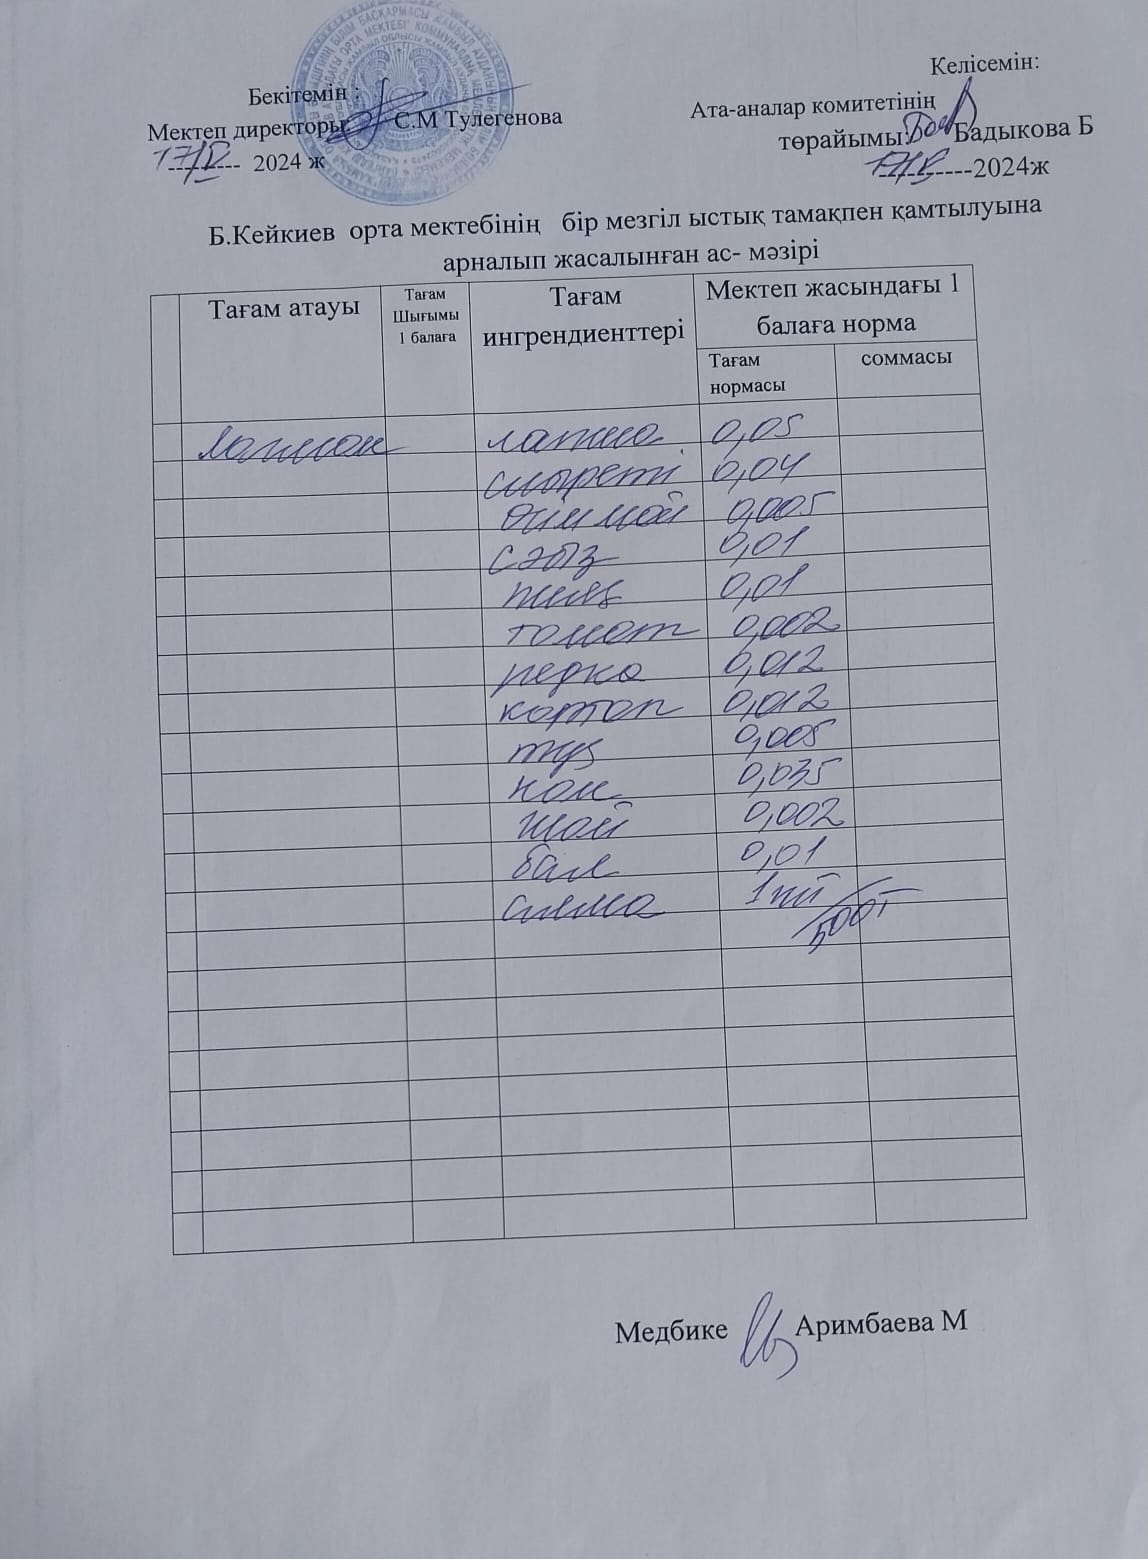 Бекітемін :
Мектеп директоры: С.М Тулегенова
17/IV 2024 ж
Келісемін:
Ата-аналар комитетінің
төрайымы: Бадыкова Б
----------2024ж
Б.Кейкиев орта мектебінің бір мезгіл ыстық тамақпен қамтылуына
арналып жасалынған ас- мәзірі
Тағам атауы
Тағам
Шығымы
1 балаға
Тағам
ингрендиенттері
Мектеп жасындағы 1
балаға норма
Тағам
нормасы
соммасы
лапша 0,05
сиыреті 0,04
өсім май 0,005
сәбіз 0,01
пияз 0,01
томот 0,002
перко 0,012
картоп 0,012
тұз 0,005
нан 0,035
шай 0,002
бал 0,01
алма 1шт
500т
Медбике Аримбаева М